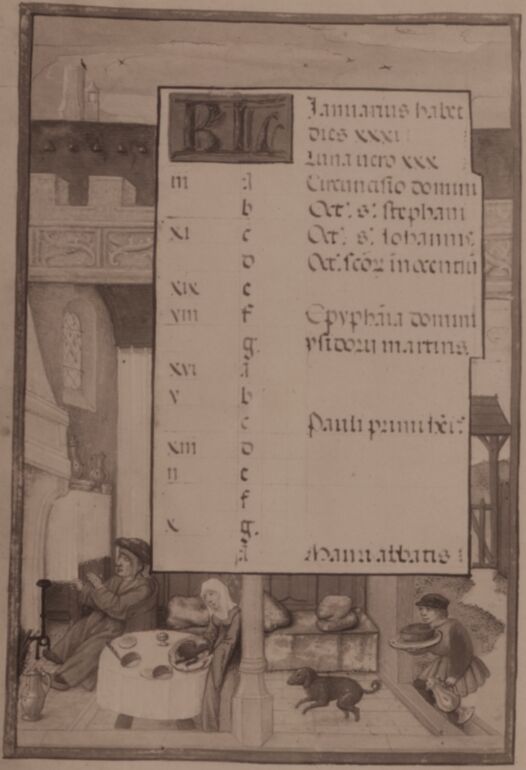 KL Januarius habet
dies xxxi
Luna vero xxx
iii A Circuncisio domini
b Oct. s. stephani
xi c Oct. s. Johannis
d Oct. scoꝝ inocentiū
xix e
viii f Epyphāia domini
g ysidori martiris
xvi A
v b
c Pauli primi
xiii d
ii e
f
x g
A Mauri abbatis